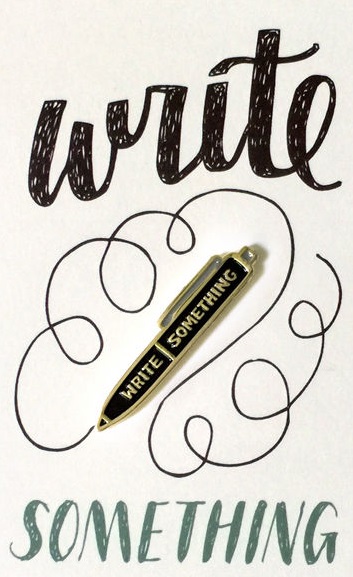 write
WRITE SOMETHING
SOMETHING